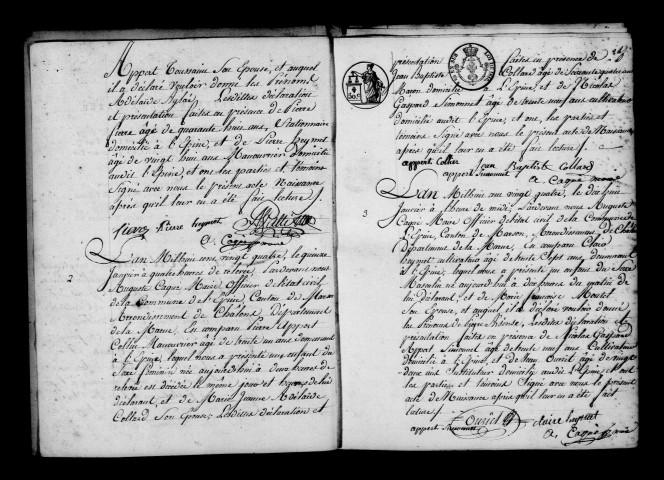 Appert Toussaint Son Epouse, et auquel
il a déclaré vouloir donner les Prénoms
Adélaïde Aglaé Lesdittes déclaration
et présentation faites en présence de Pierre
Pierre âgé de quarante huit ans, Stationnaire
domicilié à l'Epine, et de Pierre Heynet
âgé de vingt huit ans Manouvrier domicilié
audit l'Epine, et ont les parties et témoins
Signé avec nous le présent acte Naissance
après qu'il leur en a été fait lecture.
Pierre
A. Caqué maire
2
L'an Mil huit cent vingt quatre, le quinze
Janvier à quatre heures de relevée, Pardevant nous
Auguste Caqué Maire Officier de l'état civil
de la Commune de l'Epine Canton de Marson
Arrondissement de Chalons Département
de la Marne, est comparu Pierre Appert
Collin Manouvrier âgé de trente un ans demeurant
à l'Epine, lequel nous a présenté un enfant du
Sexe féminin née aujourd'hui à deux heures de
relevée et décédée le même jour et heure de lui
déclarant, et de Marie Jeanne Adélaïde
Collard Son Epouse, Lesdittes déclaration et
présentation faites en présence de
Jean Baptiste Collard âgé de Soixante quatre ans
domicilié à l'Epine, et de Nicolas
Gaspard Simonnet âgé de trente neuf ans cultivateur
domicilié audit l'Epine, et ont, les parties et
témoins Signé avec nous le présent acte de Naissance
après qu'il leur en a été fait lecture.
appert Collin Jean Baptiste Collard
appert Simonnet
A. Caqué maire
3
L'an Mil huit cent vingt quatre, le dix huit
Janvier à heure de midi, Pardevant nous Auguste
Caqué Maire Officier de l'état civil de la Commune de
l'Epine, Canton de Marson, Arrondissement de Chalons
Département de la Marne, est comparu Claire
Heynet cultivateur âgé de trente Sept ans demeurant
à l'Epine, lequel nous a présenté un enfant du Sexe
Masculin né aujourd'hui à dix heures du matin de
lui déclarant, et de Marie françoise Moutet
Son Epouse, et auquel il a déclaré vouloir donner
les Prénoms de Lesdittes déclaration et
présentation faites en présence de Nicolas Gaspard
Appert Simonnet âgé de trente neuf ans Cultivateur
domicilié à l'Epine, et de Ouriet âgé de vingt
deux ans Instituteur domicilié audit l'Epine, et ont
les parties et témoins Signé avec nous le présent
acte de Naissance après qu'il leur en a été fait
lecture.
appert Simonnet Ouriet
A. Caqué maire